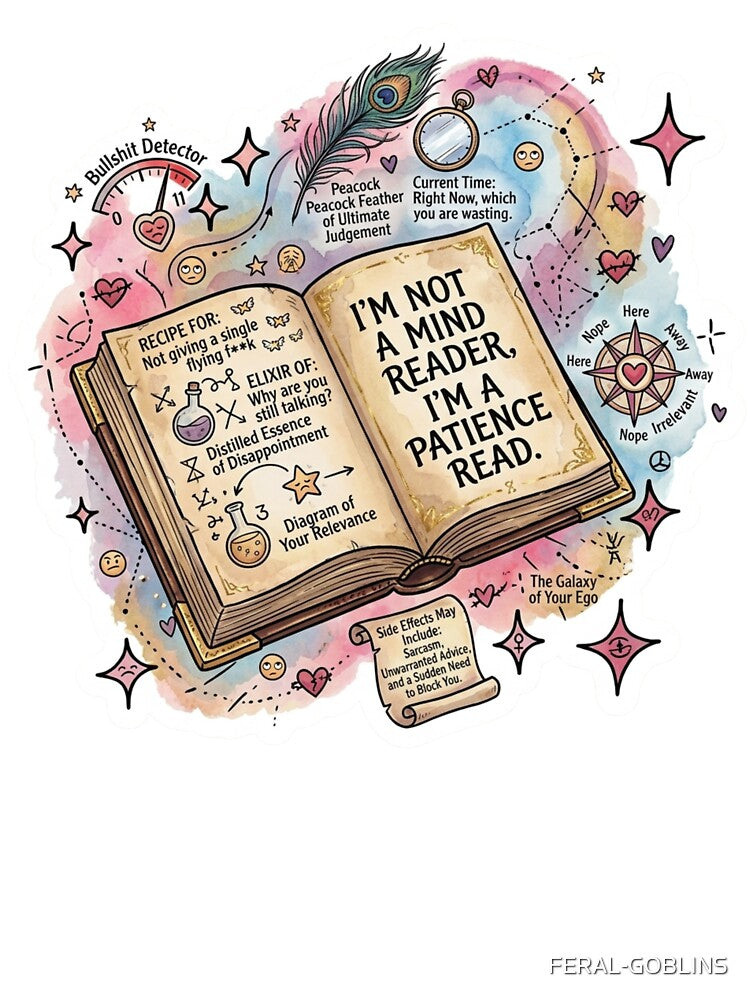 Bullshit Detector
0
11
Peacock
Peacock Feather
of Ultimate
Judgement
Current Time:
Right Now, which
you are wasting.
RECIPE FOR:
Not giving a single
flying f**k
ELIXIR OF:
Why are you
still talking?
Distilled Essence
of Disappointment
3
Diagram of
Your Relevance
I'M NOT
A MIND
READER,
I'M A
PATIENCE
READ.
Here
Nope
Away
Here
Away
Nope
Irrelevant
The Galaxy
of Your Ego
Side Effects May
Include:
Sarcasm,
Unwarranted Advice,
and a Sudden Need
to Block You.
FERAL-GOBLINS